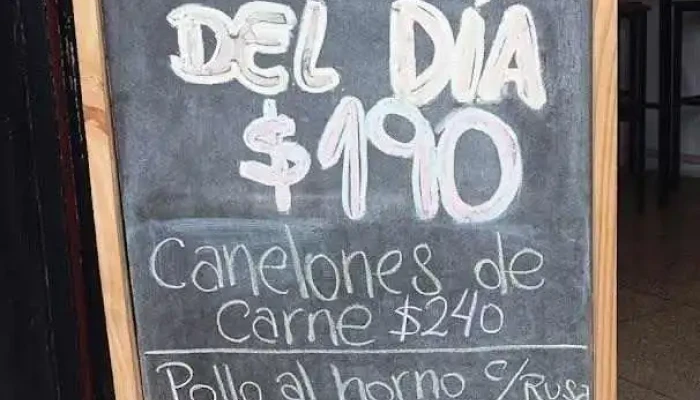 DEL DÍA
$190
Canelones de
Carne $240
Pollo al horno c/Rusa